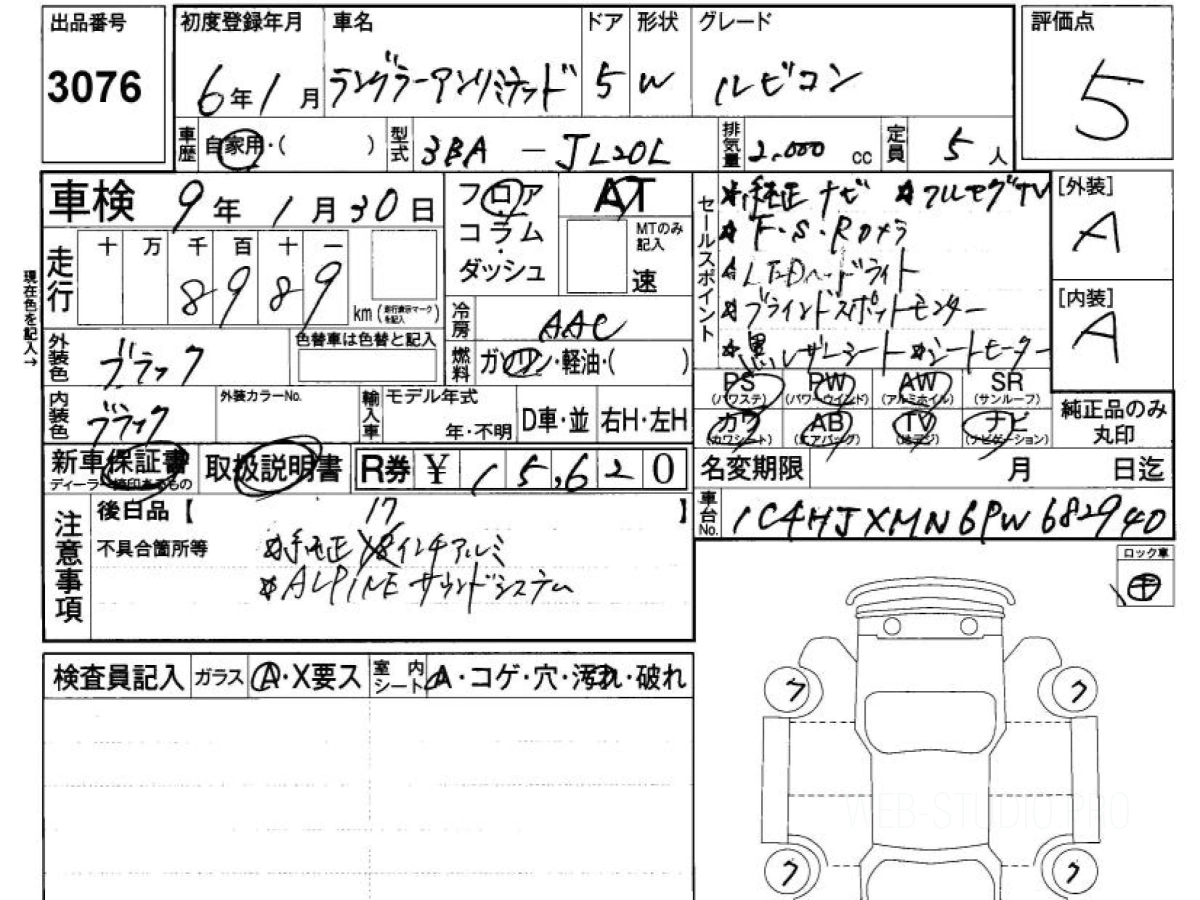 出品番号
3076
初度登録年月
6年1月
車名
ラングラーアンリミテッド
ドア
5
形状
W
グレード
ルビコン
評価点
5
車歴
自家用・( )
型式
3BA - JL20L
排気量
2.000 cc
定員
5人
車検
9年1月30日
フロア
コラム
・
ダッシュ
AT
MTのみ
記入
速
セールスポイント
☆純正ナビ ☆フルセグTV
☆F・S・Rカメラ
☆LEDヘッドライト
☆ブラインドスポットモニター
☆黒レザーシート☆シートヒーター
[外装]
A
[内装]
A
現在色を記入→
走行
十 万 千 百 十 一
8989
km (走行表示マークを記入)
冷房
AAC
外装色
ブラック
色替車は色替と記入
燃料
ガソリン・軽油・( )
内装色
ブラック
外装カラーNo.
輸入車
モデル年式
年・不明
D車・並
右H・左H
PS (パワステ)
PW (パワーウインド)
AW (アルミホイル)
SR (サンルーフ)
カワ (カワシート)
AB (エアバッグ)
TV (地デジ)
ナビ (ナビゲーション)
純正品のみ
丸印
新車保証書
ディーラー捺印あるもの
取扱説明書
R券 ¥ 15,620
名変期限 月 日迄
注意事項
後日品【 】
不具合箇所等
17
☆純正18インチアルミ
☆ALPINEサウンドシステム
車台No.
1C4HJXMN6PW682940
ロック車
検査員記入
ガラス
A・X要ス
室内
シート
A・コゲ・穴・汚れ・破れ
フ
フ
WEB-STUDIO.PRO
フ
フ